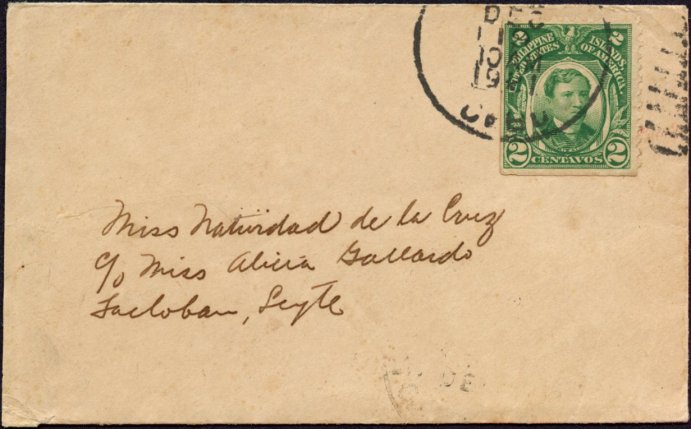 DEC
CEBU
2 2
PHILIPPINE ISLANDS
UNITED STATES OF AMERICA
2 CENTAVOS 2
Miss Natividad de la Cruz
c/o Miss Alicia Gallardo
Tacloban, Leyte
DE